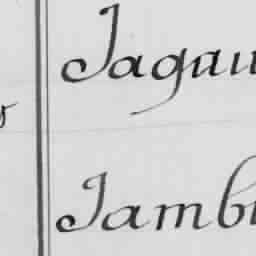 Jagau
Jamb